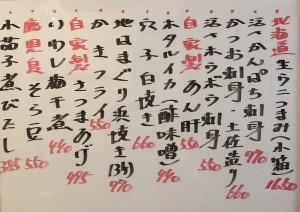 北海道 生ウニつまみ(小箱) 1650
活〆かんぱち刺身 770
かつお刺身 土佐造り 660
活〆ホウボウ刺身 550
自家製 あん肝 550
ホタルイカ(酢味噌) 440
穴子白焼き 660
地はまぐり浜焼き 770
かきフライ 550
自家製 さつまあげ 495
いわし梅干煮 440
鹿児島 そら豆 550
小茄子煮びたし 385